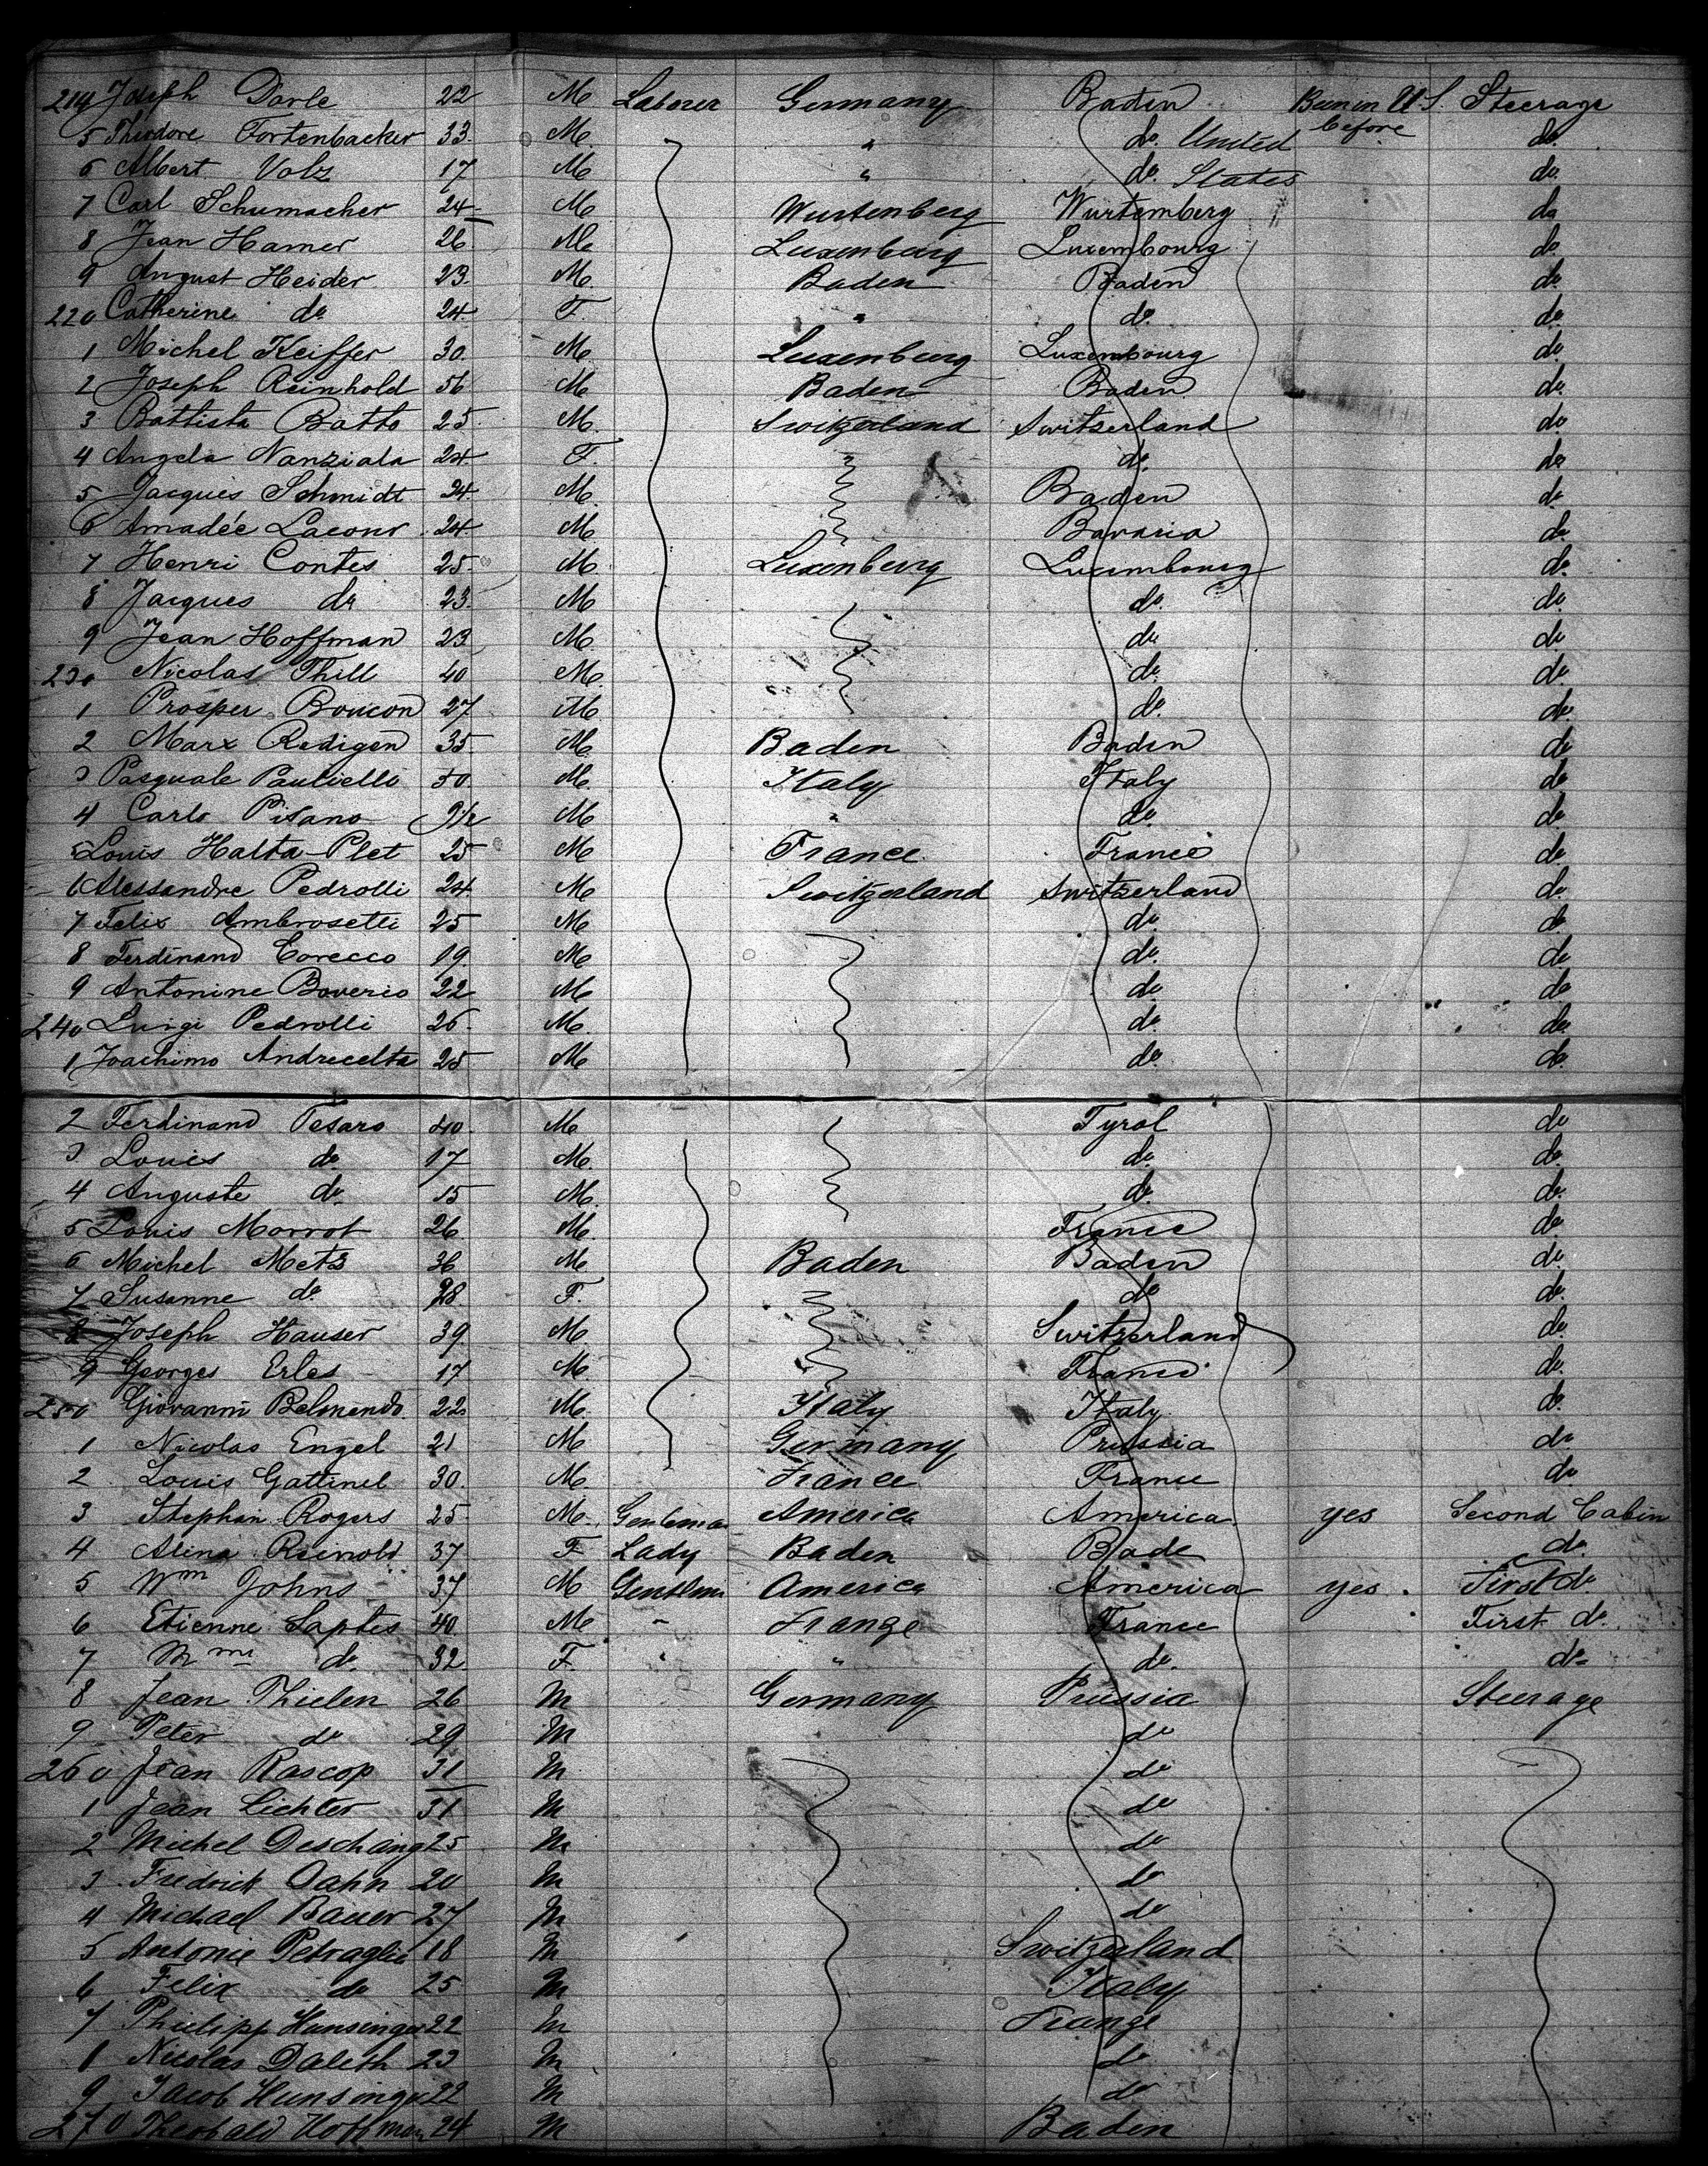 214 Joseph Dorle 22 M Laborer Germany Baden Been in U.S. before Steerage
5 Theodore Fortenbacker 33 M " do. United do.
6 Albert Volz 17 M " do. States do.
7 Carl Schumacher 24 M Wurtenberg Wurtemberg do
8 Jean Hamer 26 M Luxenburg Luxembourg do.
9 August Heider 23 M Baden Baden do.
220 Catherine do 24 F. " do. do.
1 Michel Keiffer 30 M Luxenburg Luxembourg do.
2 Joseph Reinhold 56 M Baden Baden do.
3 Battista Batto 25 M. Switzerland Switzerland do.
4 Angela Nanziala 24 F. do. do
5 Jacques Schmidt 24 M. Baden do.
6 Amadée Lacour 24 M Bavaria do.
7 Henri Contes 25 M Luxenburg Luxembourg do.
8 Jacques do 23 M do. do.
9 Jean Hoffman 23 M. do do
230 Nicolas Thill 40 M. do. do.
1 Prosper Boucon 27 M do. do.
2 Marx Redigen 35 M Baden Baden do
3 Pasquale Pauciello 50 M. Italy Italy do.
4 Carlo Pisano 9½ M " do. do.
5 Louis Halta-Plet 25 M France France do.
6 Alessandre Pedrolli 24 M Switzerland Switzerland do.
7 Felix Ambrosetti 25 M do. do
8 Ferdinand Corecco 19 M do. do
9 Antonine Boverio 22 M do do
240 Luigi Pedrolli 26 M. do. do.
1 Joachimo Andrecelta 25 M do. do.
2 Ferdinand Pesaro 40 M Tyrol do
3 Louis do 17 M. do. do.
4 Auguste do 15 M. do. do.
5 Louis Morrot 26 M. France do.
6 Michel Metz 36 M Baden Baden do.
7 Susanne do 28 F. do do.
8 Joseph Hauser 39 M Switzerland do.
9 Georges Erles 17 M. France do.
250 Giovanni Belmendo 22 M. Italy Italy do.
1 Nicolas Engel 21 M Germany Prussia do
2 Louis Gattinel 30 M. France France do
3 Stephen Rogers 25 M. Gentleman America America. yes Second Cabin
4 Alina Reinold 37 F Lady Baden Bade do.
5 Wm Johns 37 M Gentlem America America yes. First do
6 Etienne Saptes 40 M " France France First do.
7 Mme do. 32 F. " " do. do
8 Jean Thielen 26 M Germany Prussia Steerage
9 Peter do 29 M do
260 Jean Rascop 31 M do
1 Jean Lichter 31 M do
2 Michel Deschang 25 M do
3 Fredrick Dahn 20 M do
4 Michael Bauer 27 M do
5 Antonie Petraglia 18 M Switzerland
6 Felix do 25 M Italy
7 Philipp Hunsinger 22 M France
8 Nicolas Daleth 23 M do
9 Jacob Hunsinger 22 M do
270 Theobald Hoffman 24 M Baden